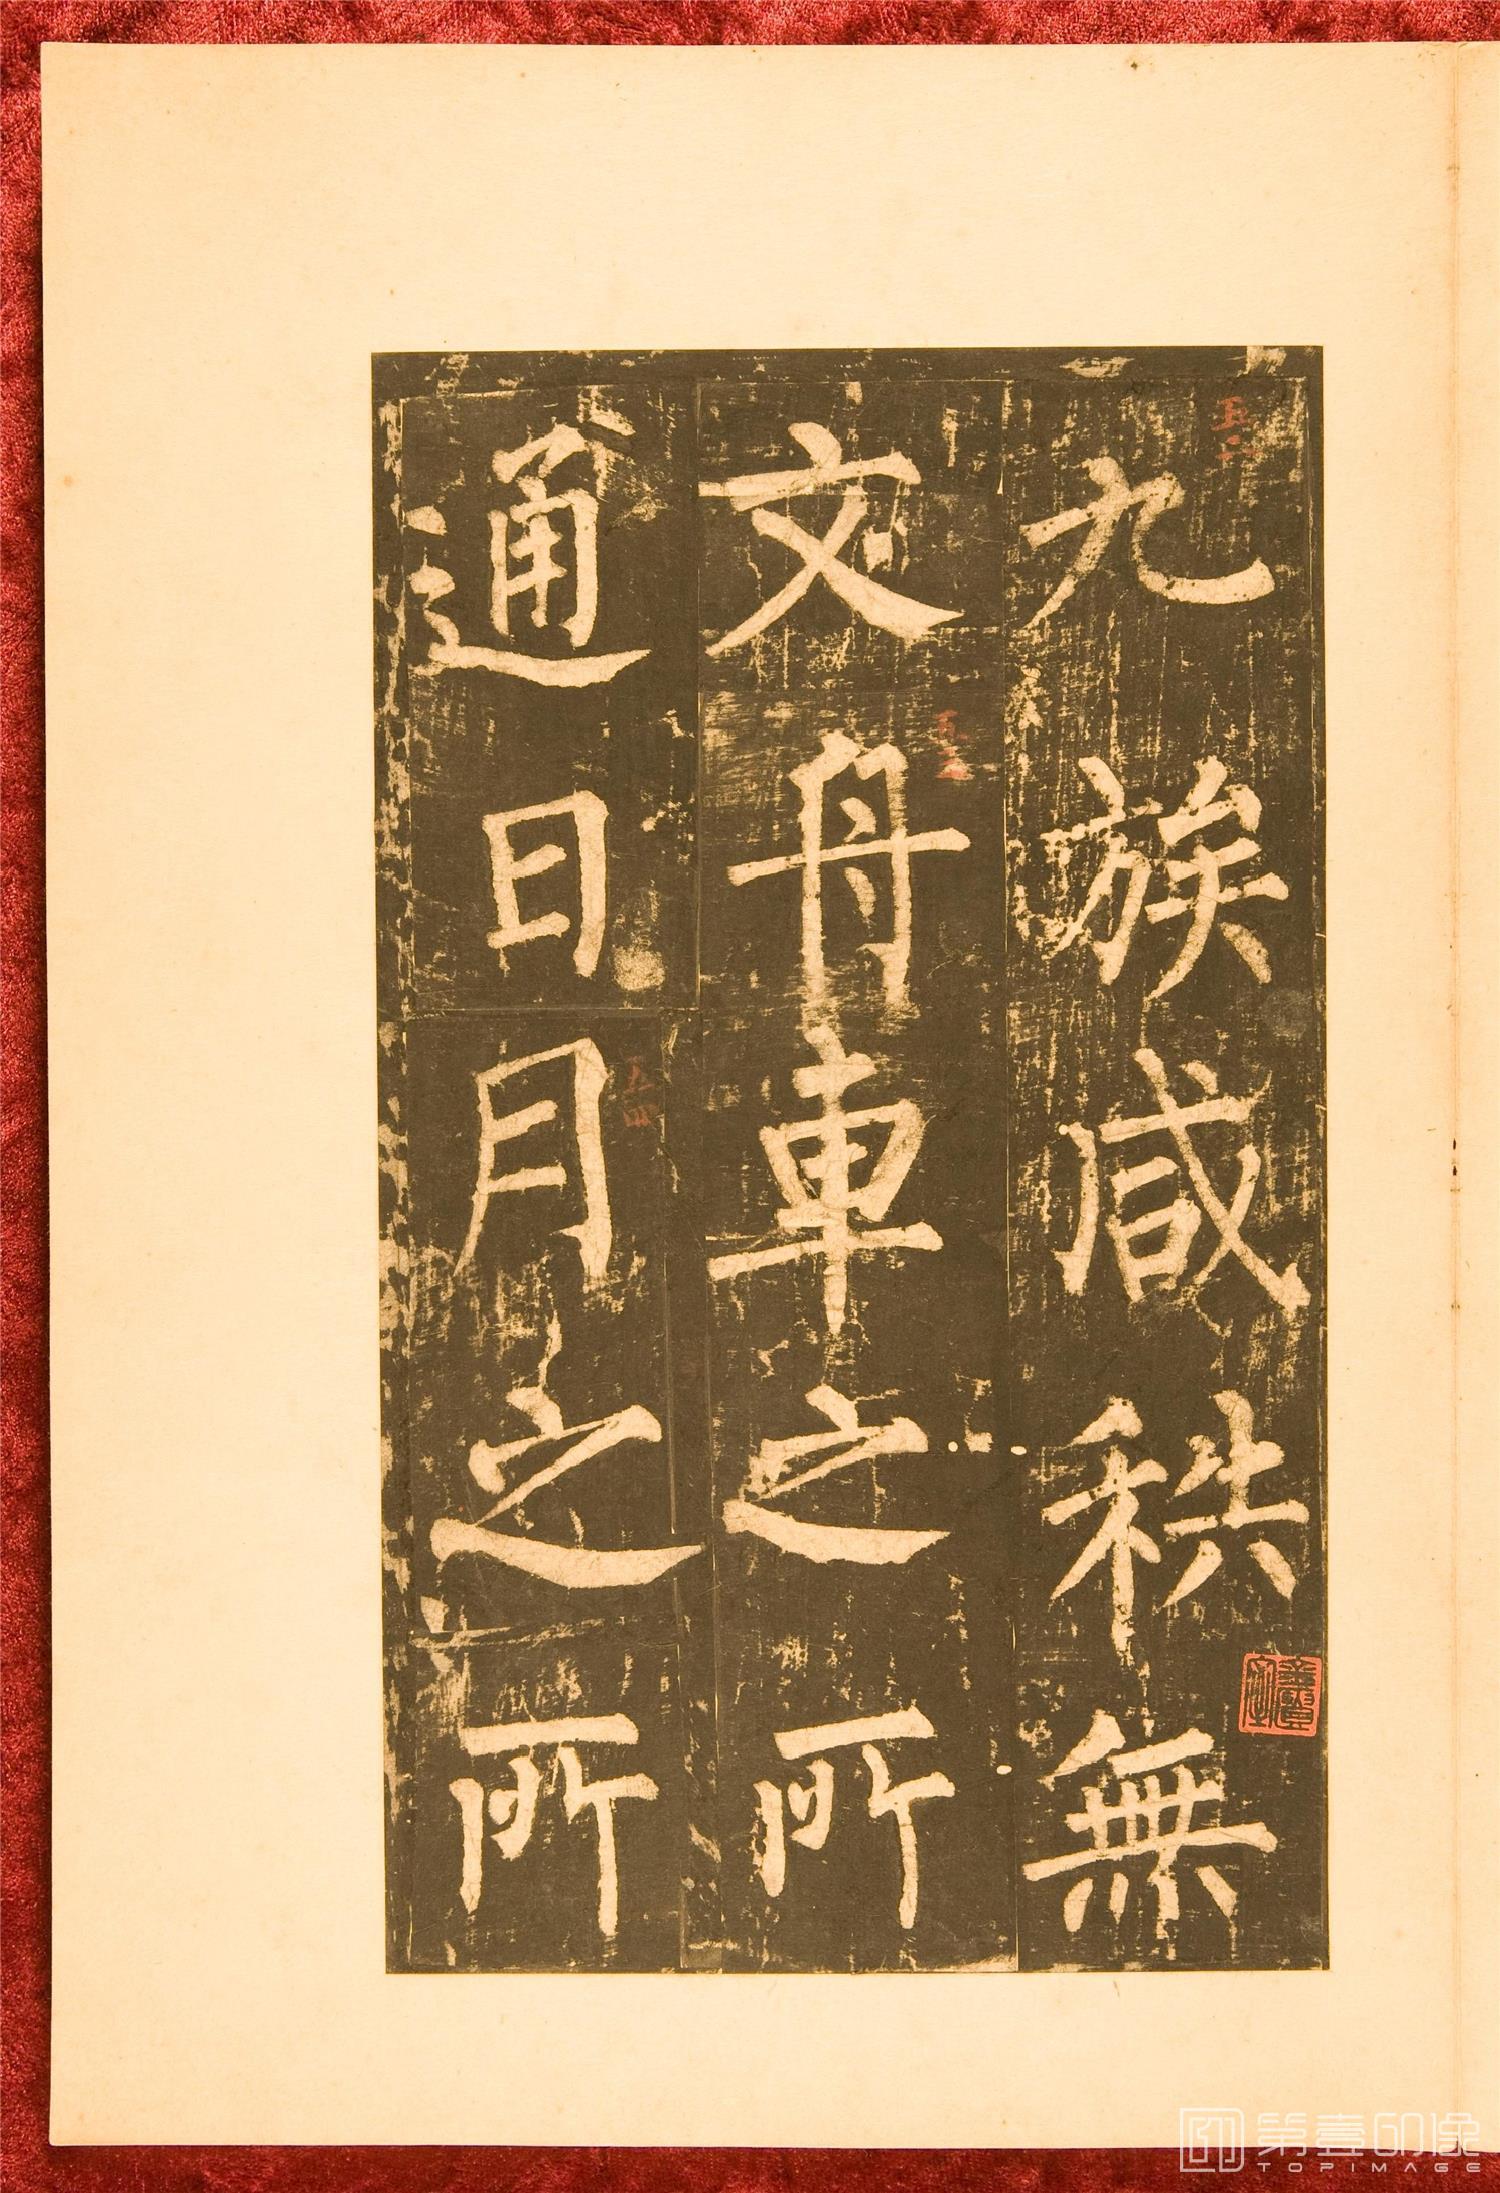 九族咸秩無
文舟車之所
通日月之所
五二
五三
五四
第壹印像
TOPIMAGE